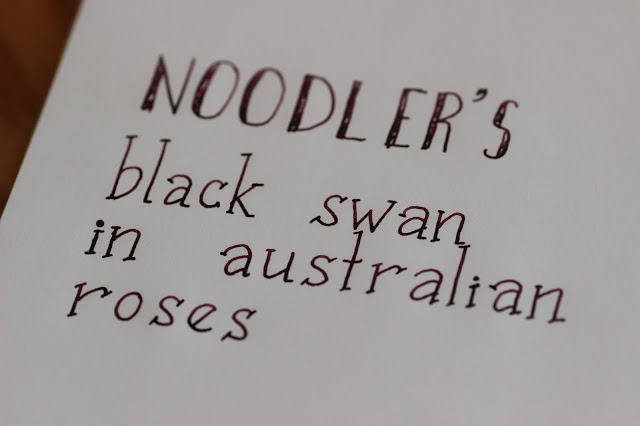 NOODLER'S
black swan
in australian
roses